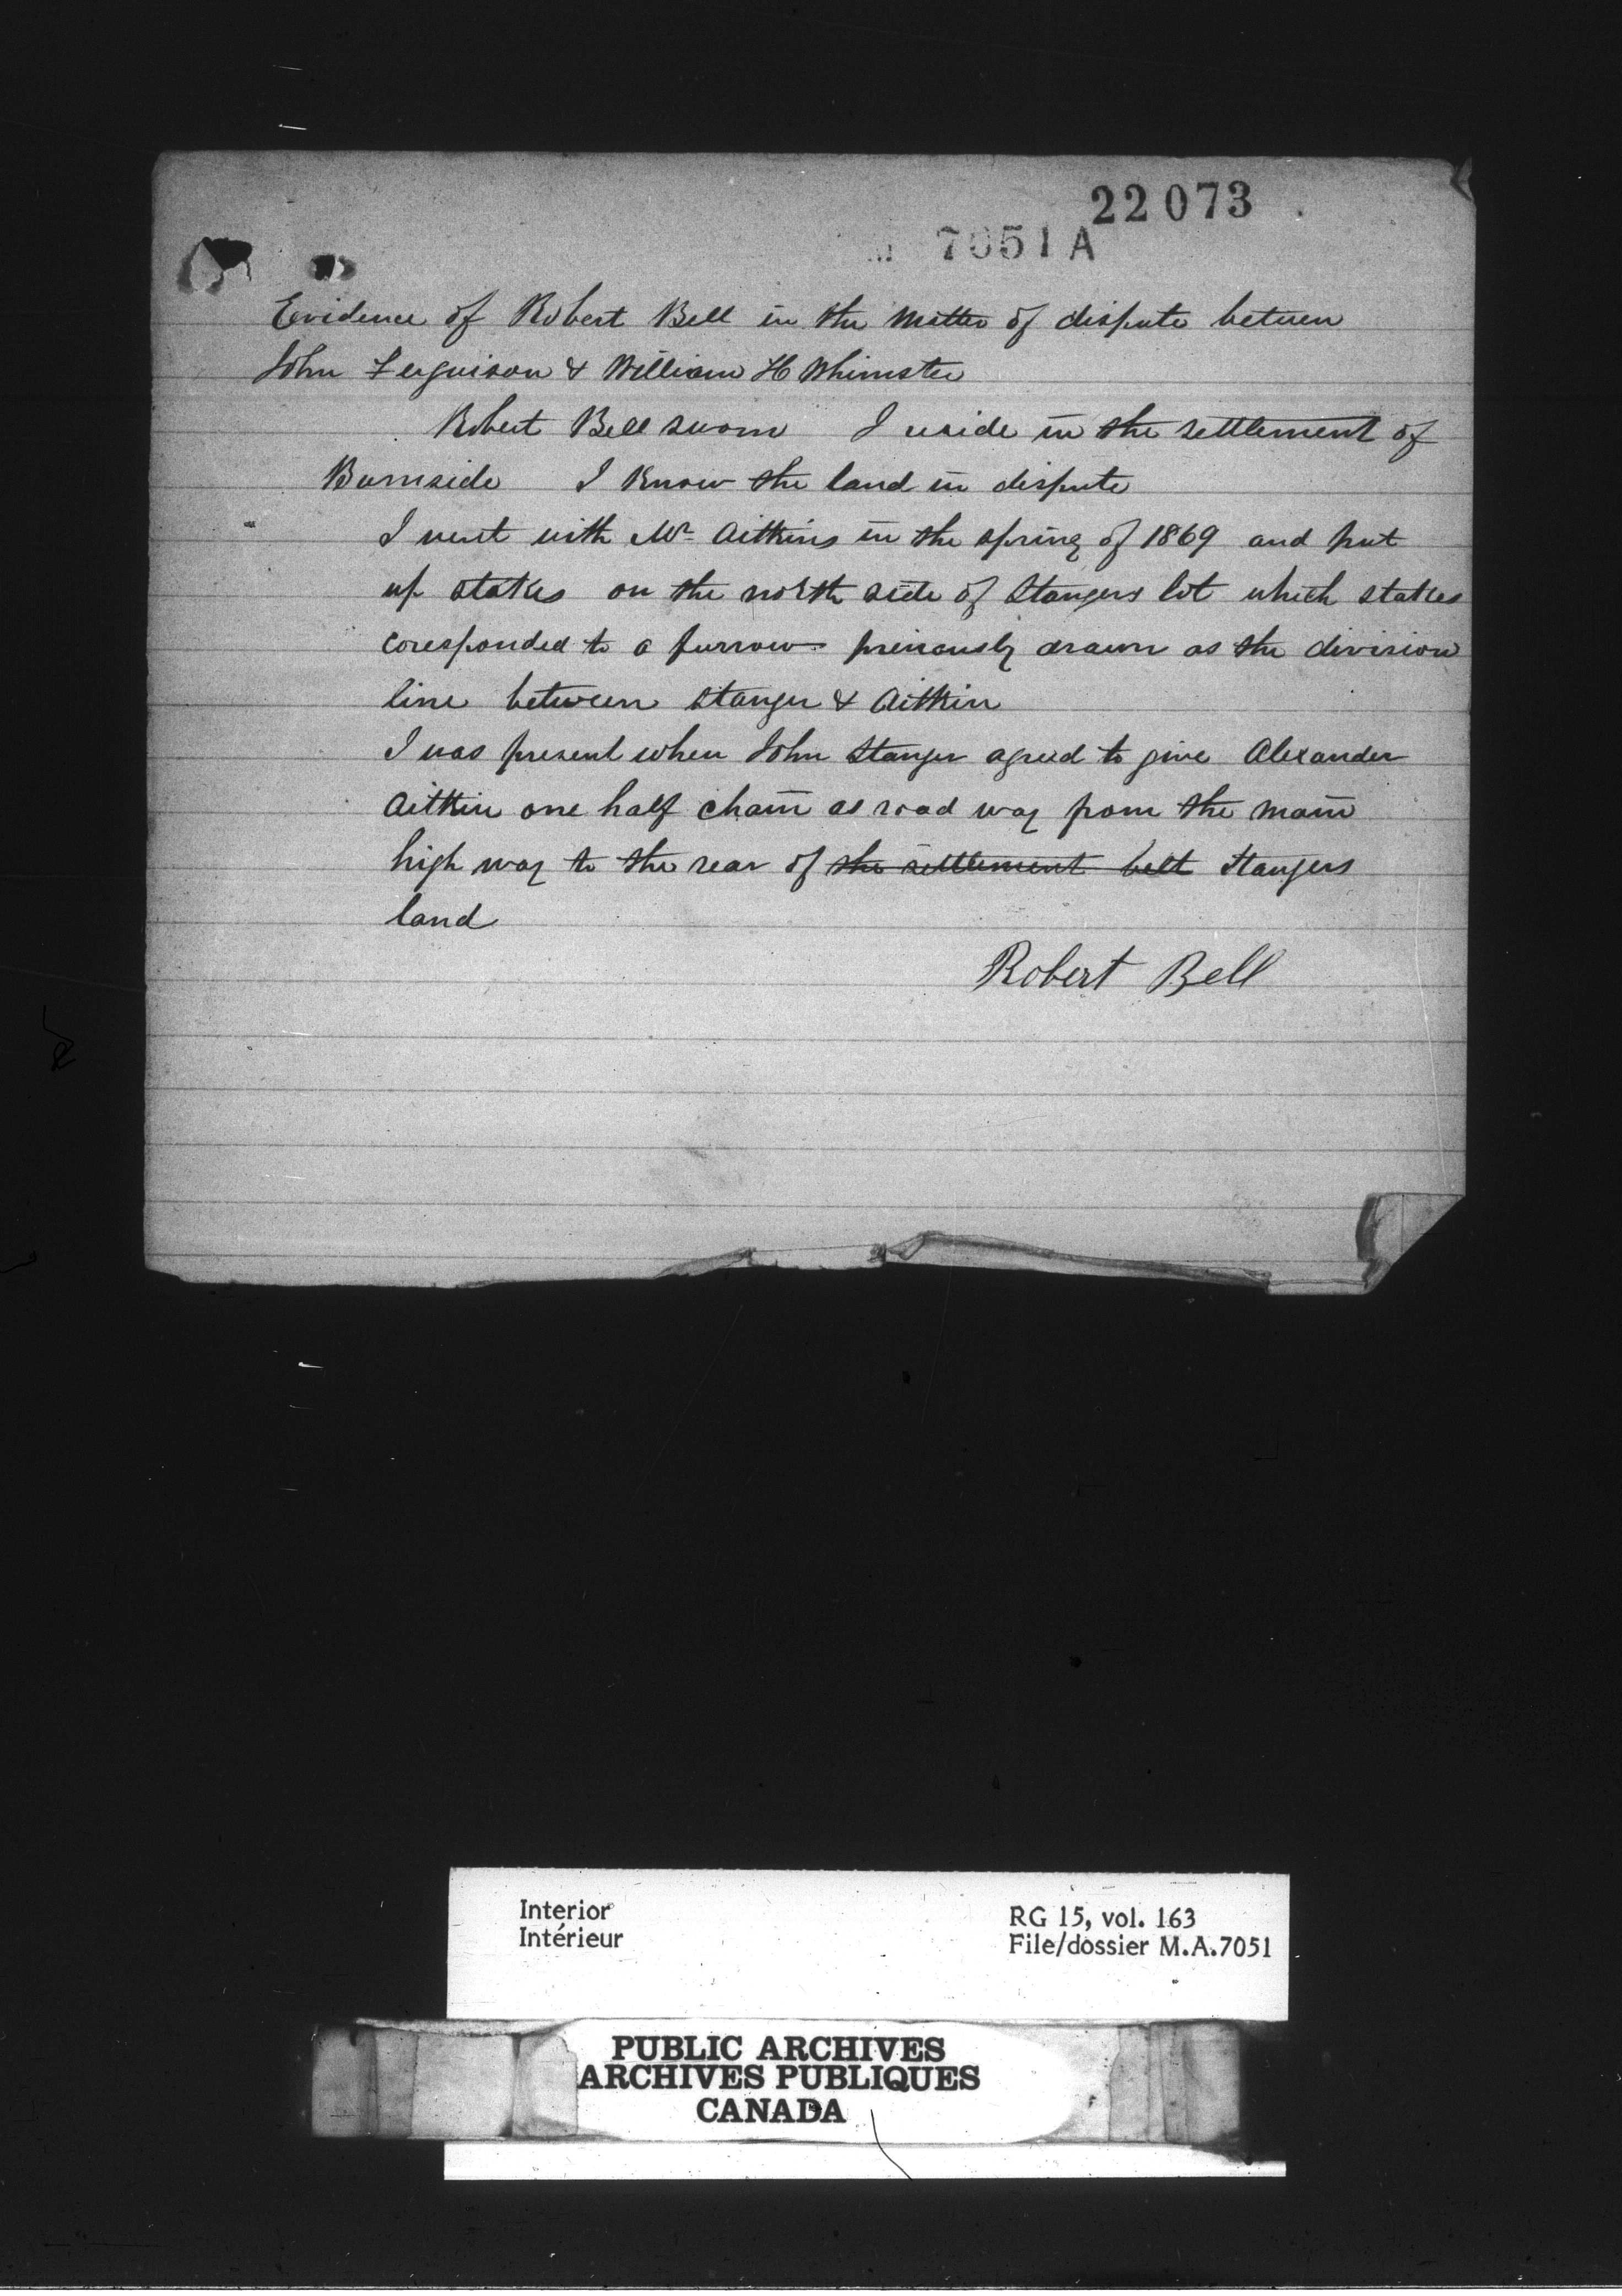 22073
7051 A
Evidence of Robert Bell in the matter of dispute between
John Ferguison & William H Whimster
Robert Bell sworn I reside in the settlement of
Burnside I know the land in dispute
I went with Mr Aitkins in the spring of 1869 and put
up stakes on the north side of Stangers lot which stakes
coresponded to a furrow previously drawn as the division
line between Stanger & Aitkin
I was present when John Stanger agreed to give Alexander
Aitkin one half chain as road way from the main
high way to the rear of the settlement belt Stangers
land
Robert Bell
Interior
Intérieur
RG 15, vol. 163
File/dossier M.A.7051
PUBLIC ARCHIVES
ARCHIVES PUBLIQUES
CANADA